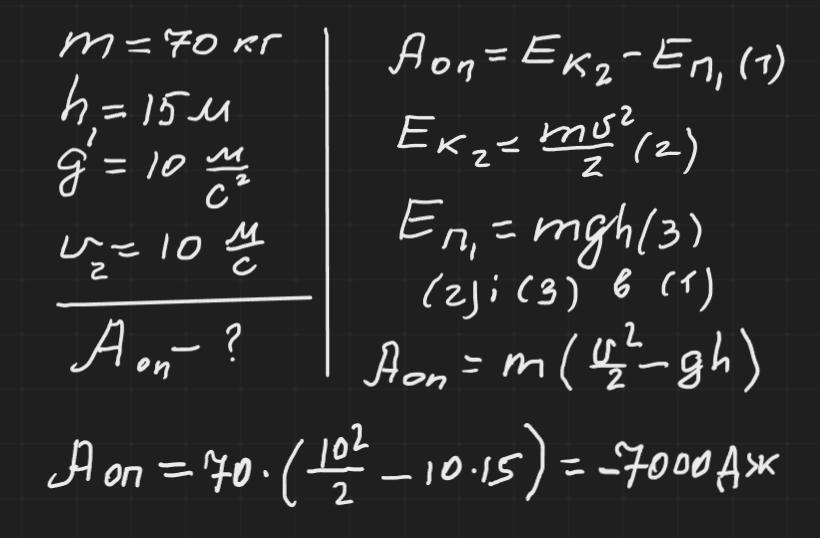 m = 70 кг
h₁ = 15 м
g = 10 м/с²
υ₂ = 10 м/с
Aоп - ?
Aоп = Eк₂ - Eп₁ (1)
Eк₂ = mυ²/2 (2)
Eп₁ = mgh (3)
(2) i (3) в (1)
Aоп = m(υ²/2 - gh)
Aоп = 70·(10²/2 - 10·15) = -7000 Дж